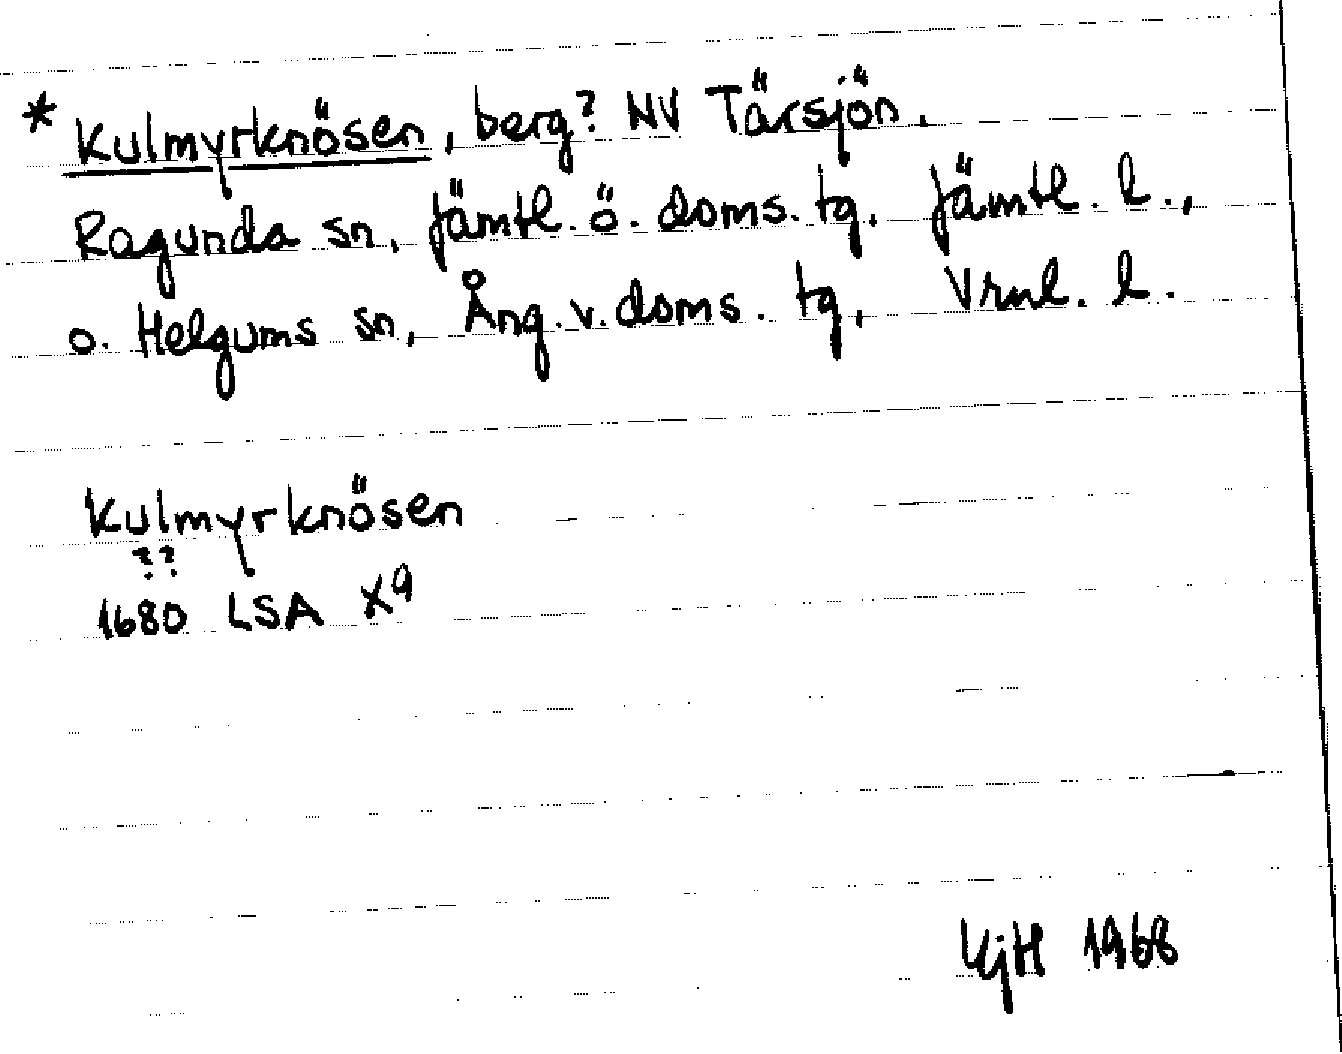 * Kulmyrknösen, berg? NV Tärsjön,
Ragunda sn, Jämtl. ö. doms. tg, Jämtl. l.,
o. Helgums sn, Ång. v. doms. tg, Vrnl. l.
Kulmyrknösen
??
1680 LSA X9
KjH 1968